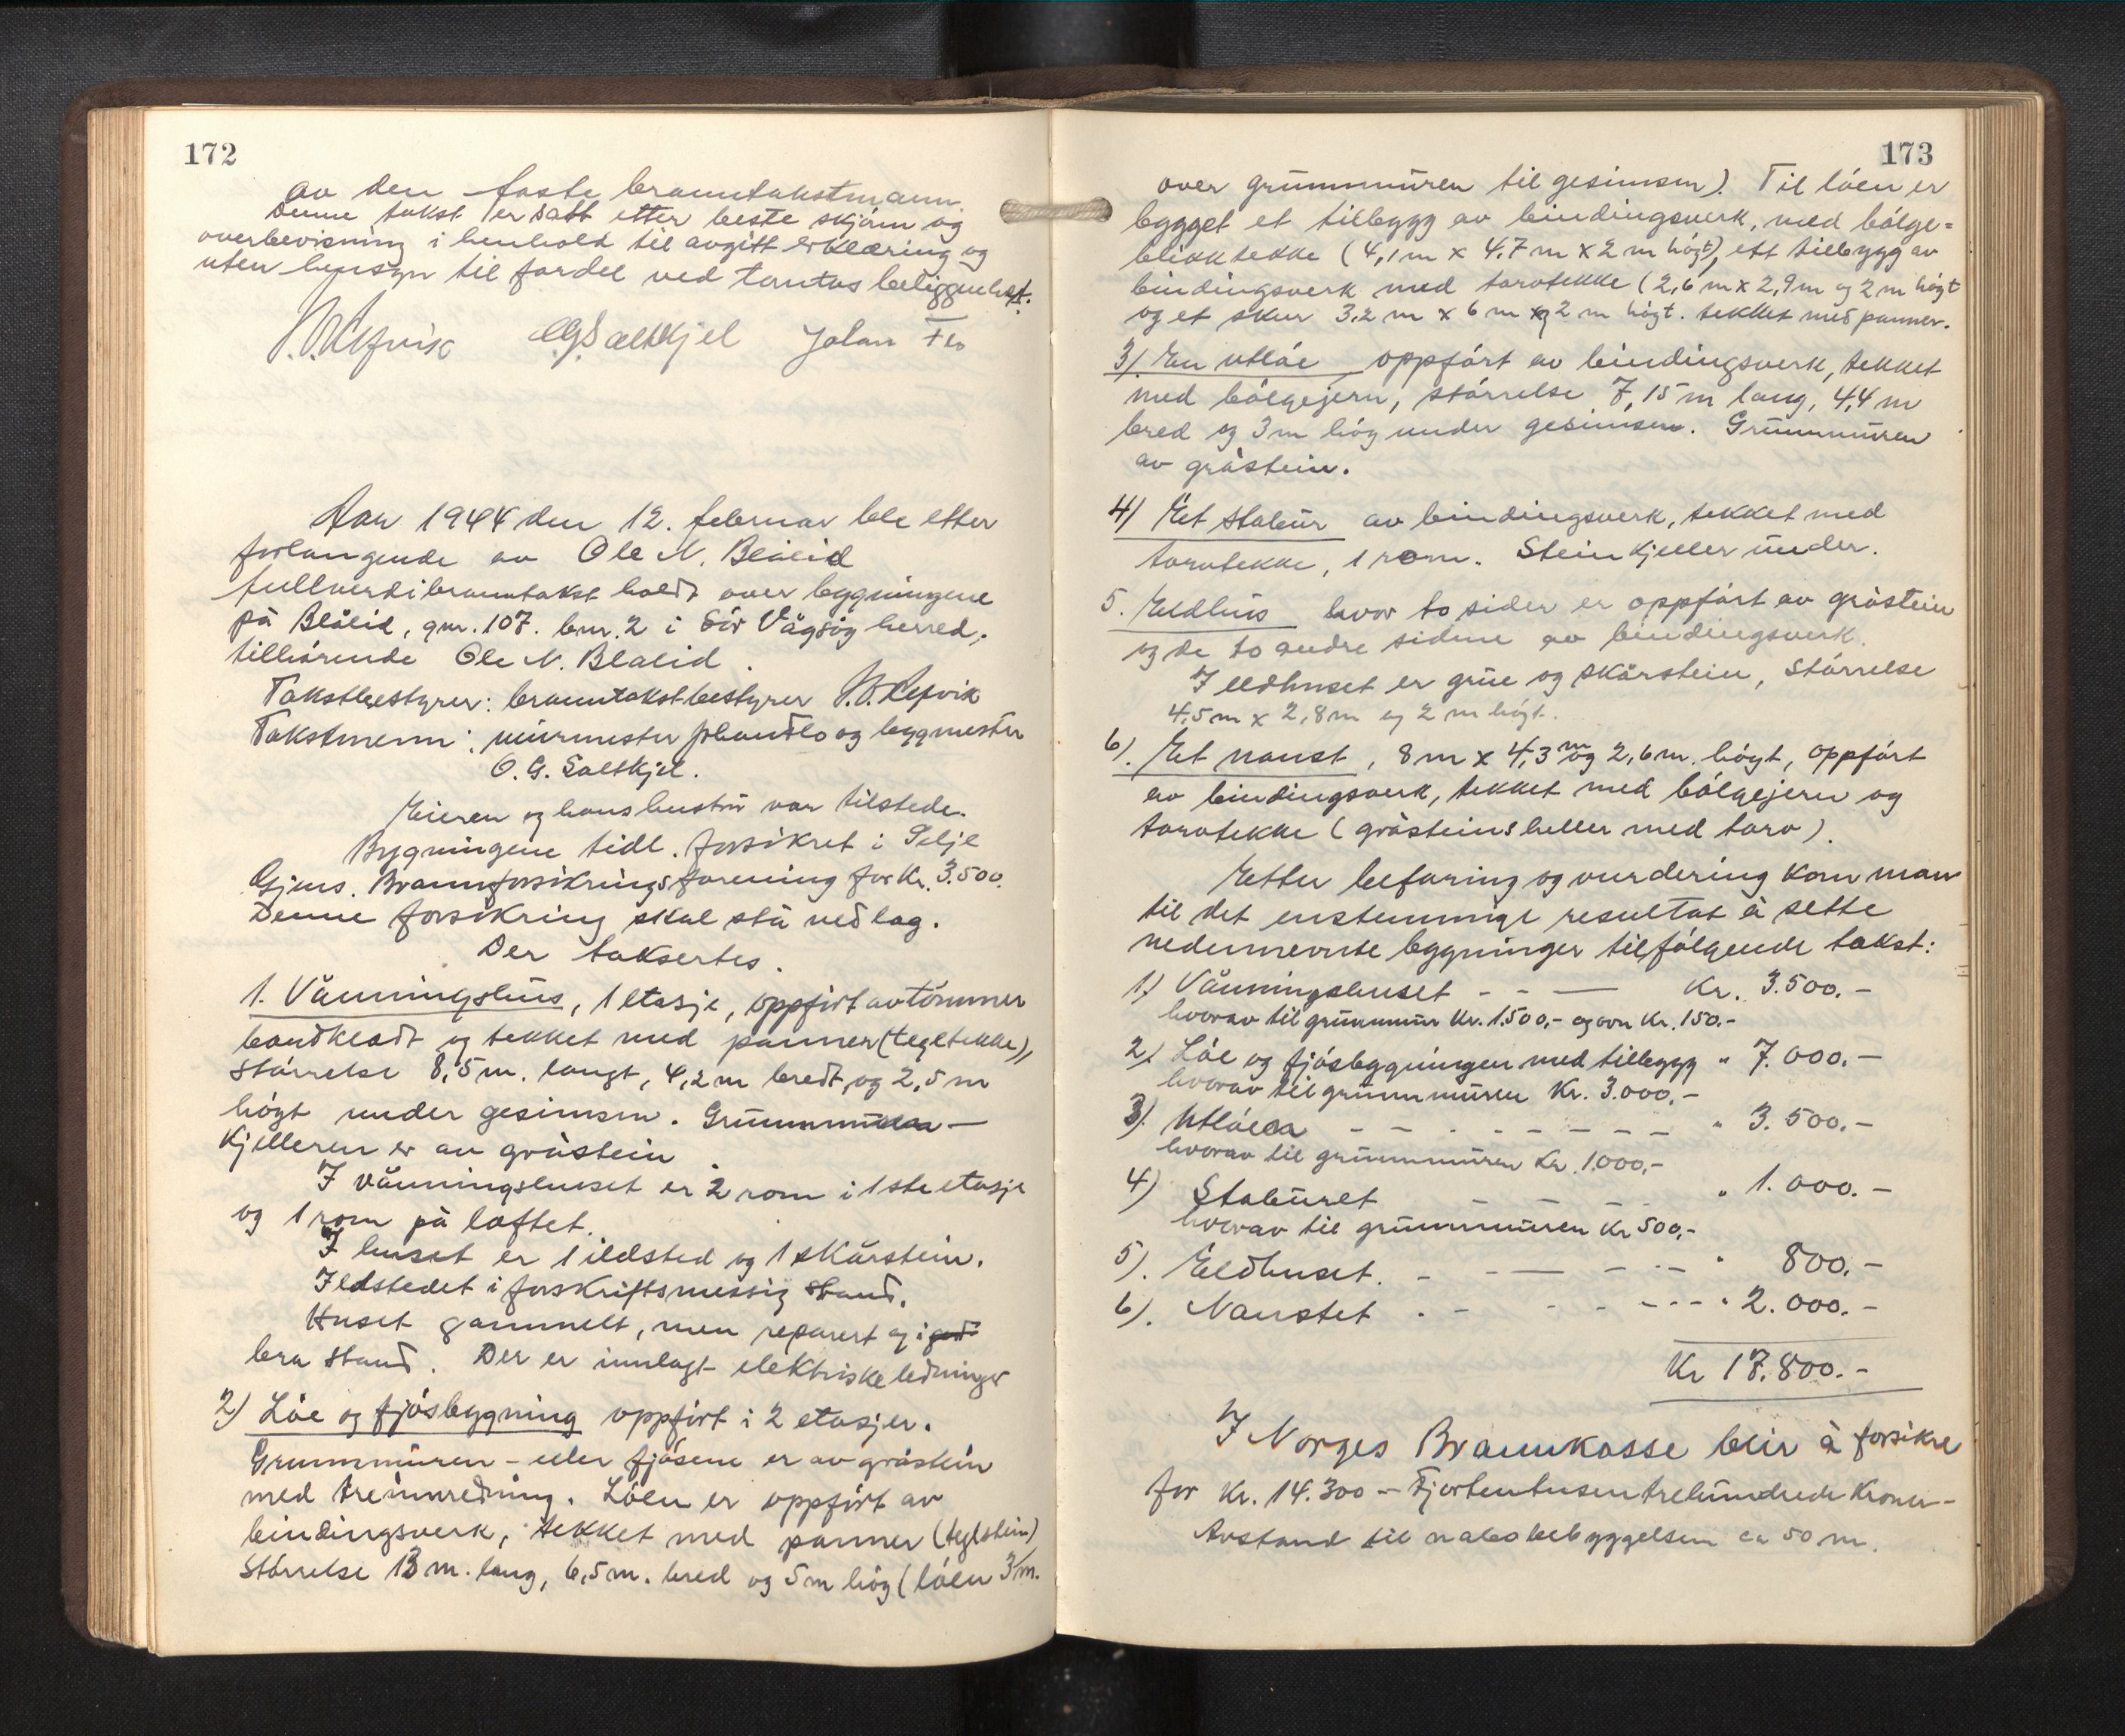 172
av den faste branntakstmann.
Denne takst er satt etter beste skjönn og
overbevisning i henhold til avgitt erklæring og
uten hensyn til fordel ved tomtas beliggenhet.
O.G. Saltkjel Johan Flo
Aar 1944 den 12. februar ble etter
forlangende av Ole N. Blålid
fullverdibranntakst holdt over bygningene
på Blålid, gnr. 107. bnr. 2 i Sör Vågsöy herred,
tilhörende Ole N. Blålid.
Takstbestyrer: branntakstbestyrer
Takstmenn: murmester Johan Flo og byggmester
O. G. Saltkjel.
Eieren og hans hustru var tilstede.
Bygningene tidl. forsikret i Selje
Gjens. Brannforsikringsforening for Kr. 3.500.
Denne forsikring skal stå ved lag.
Der taksertes.
1. Våningshus, 1 etasje, oppfört av tömmer
bordkledt og tekket med panner (tegltekke),
Störrelse 8,5 m. langt, 4,2 m bredt, og 2,5 m
högt under gesimsen. Grunnmuren -
kjelleren er av gråstein.
I våningshuset er 2 rom i 1ste etasje
og 1 rom på loftet.
I huset er 1 ildsted og 1 skårstein.
Ildstedet i forskriftsmessig stand.
Huset gammelt, men reparert og i god
bra stand. Der er innlagt elektriske ledninger
2) Löe og fjösbygning oppfört i 2 etasjer.
Grunnmuren - eller fjösene er av gråstein
med treinnredning. Löen er oppfört av
bindingsverk, tekket med panner (teglstein)
Störrelse 13 m. lang, 6,5 m. bred og 5 m höy (löen 3 m.
173
over grunnmuren til gesimsen). Til löen er
bygget et tilbygg av bindingsverk, med bölge=
blikktekke (4,1 m x 4.7 m x 2 m högt), ett tilbygg av
bindingsverk med torvtekke (2,6 m x 2,9 m og 2 m högt
og et skur 3.2 m x 6 m og 2 m högt. tekket med panner.
3) En utlöe oppfört av bindingsverk, tekket
med bölgejern, störrelse 7,15 m lang, 4,4 m
bred og 3 m höy under gesimsen. Grunnmuren
av gråstein.
4) Et stabur av bindingsverk, tekket med
torvtekke, 1 rom. Steinkjeller under.
5. Eldhus hvor to sider er oppfört av gråstein
og de to andre sidene av bindingsverk.
I eldhuset er grue og skårstein, Störrelse
4,5 m x 2,8 m og 2 m högt.
6). Et naust, 8 m x 4,3 m og 2,6 m. högt, oppfört
av bindingsverk, tekket med bölgejern og
torvtekke (gråsteinsheller med torv).
Etter befaring og vurdering kom man
til det enstemmige resultat å sette
nedennevnte bygninger til fölgende takst:
1) Våningshuset - - — Kr. 3.500.-
hvorav til grunnmur Kr. 1.500,- og ovn Kr. 150.-
2) Löe og fjösbygningen med tilbygg " 7.000.-
hvorav til grunnmuren Kr. 3.000.-
3). Utlöen - - - - - - - - " 3.500.-
hvorav til grunnmuren Kr. 1.000,-
4) Staburet - - - " 1.000.-
hvorav til grunnmuren Kr 500,-
5). Eldhuset. - - — - - - " 800.-
6). Naustet . - - - - - - - " 2.000.-
Kr 17.800.-
I Norges Brannkasse blir å forsikre
for Kr. 14.300 - Fjortentusentrehundrede Kroner -
Avstand til nabobebyggelsen ca 50 m.